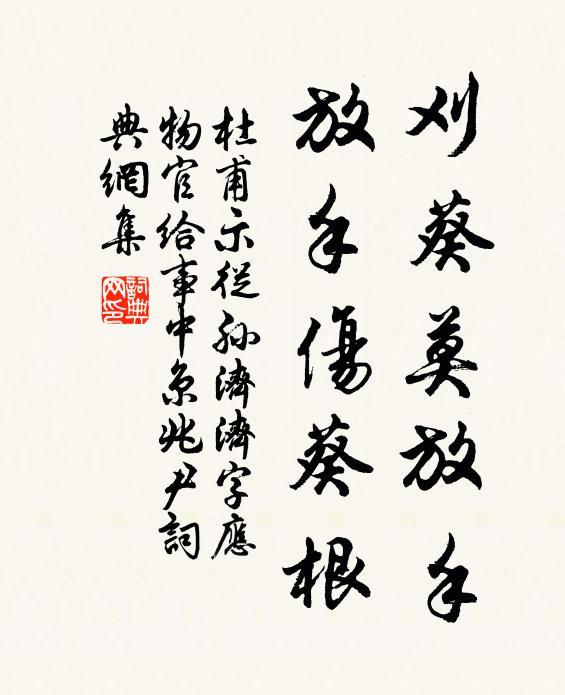 刈葵莫放手
放手傷葵根
杜甫示從孫濟濟字應
物官給事中京兆尹詞
典網集
詞典網印